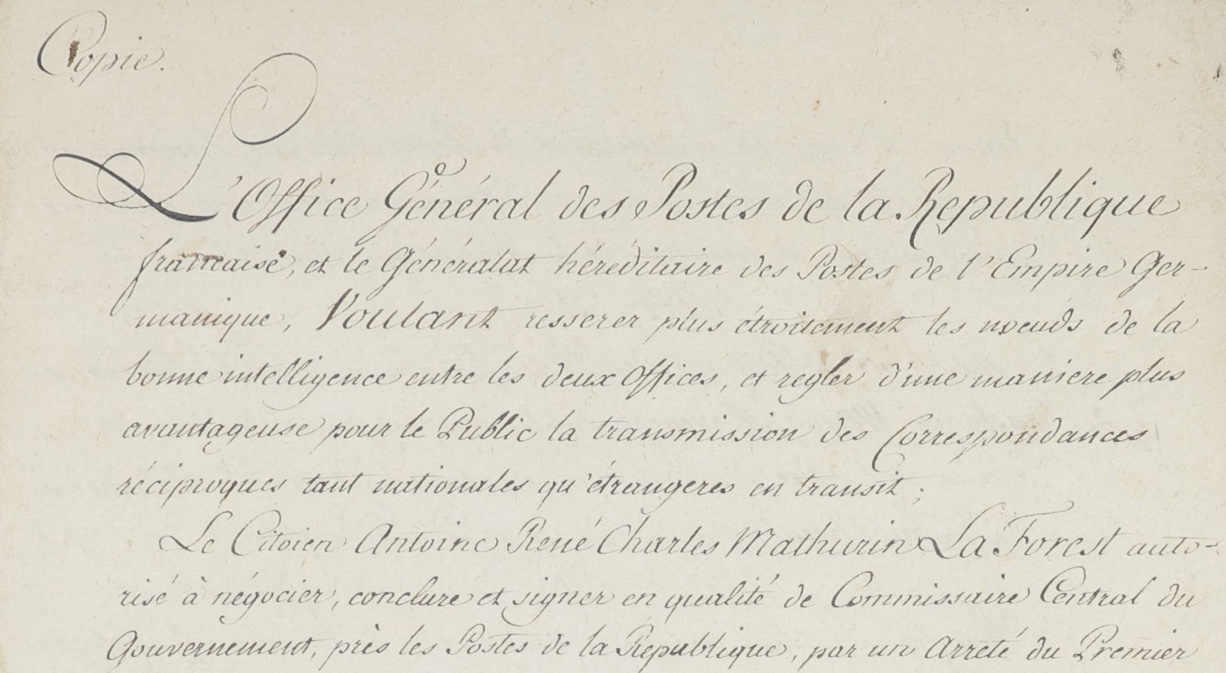 Copie.
L'Office Général des Postes de la Republique
française, et le Généralat héréditaire des Postes de l'Empire Ger-
manique, Voulant resserer plus étroitement les nœuds de la
bonne intelligence entre les deux Offices, et regler d'une maniere plus
avantageuse pour le Public la transmission des Correspondances
réciproques tant nationales qu'étrangeres en transit;
Le Citoien Antoine René Charles Mathurin La Forest auto-
risé à négocier, conclure et signer en qualité de Commissaire Central du
Gouvernement, près les Postes de la République, par un Arrêté du Premier